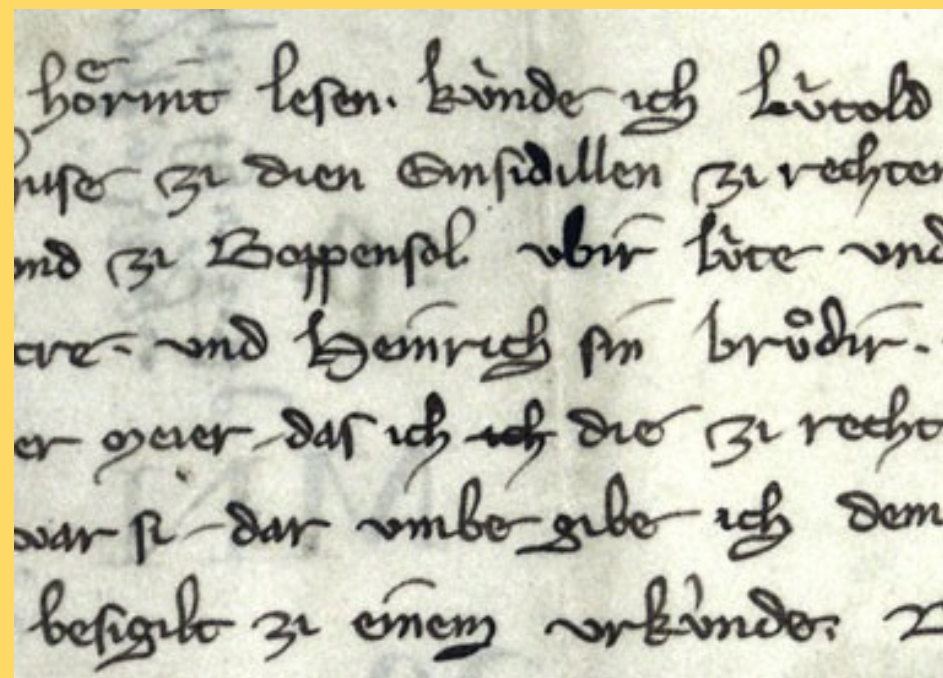 hoͤrint lesen. kuͥnde ich Luͥtold
huse zi dien Einsidillen zi rechten
und zi Boppensol vbir luͥte vnd
cre. vnd Heinrich sin bruͦdir.
er meier das ich ich die zi recht
war si dar vmbe gibe ich dem
besigilt zi einem vrkuͥnde.